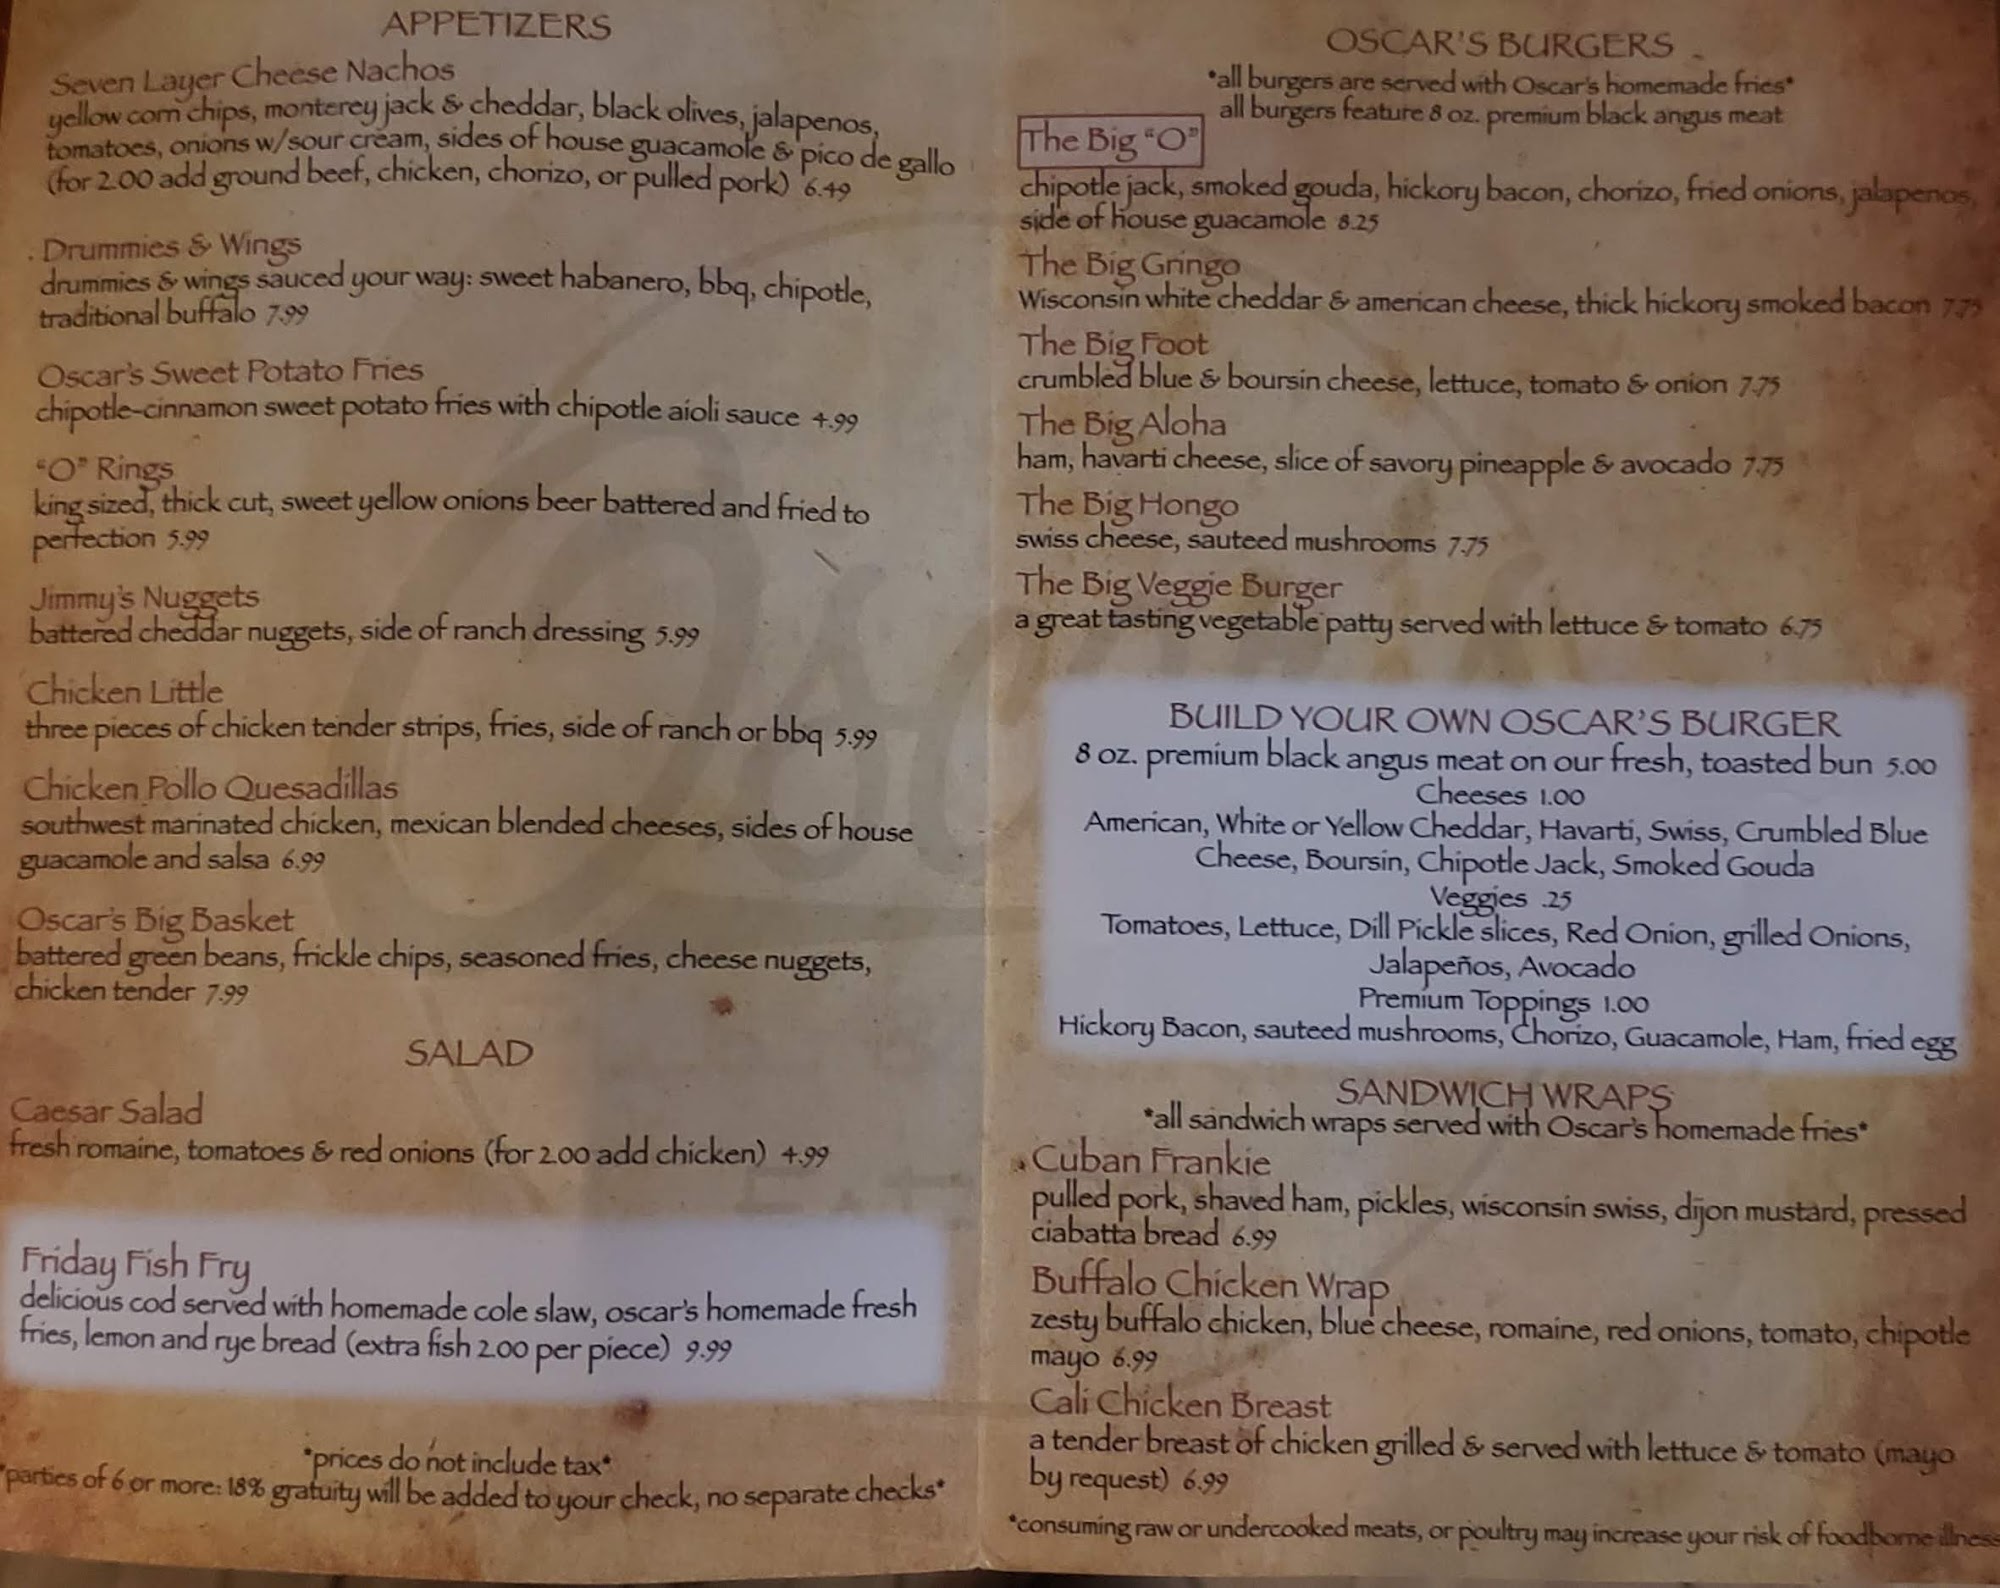 APPETIZERS
Seven Layer Cheese Nachos
yellow corn chips, monterey jack & cheddar, black olives, jalapenos,
tomatoes, onions w/sour cream, sides of house guacamole & pico de gallo
(for 2.00 add ground beef, chicken, chorizo, or pulled pork) 6.49
Drummies & Wings
drummies & wings sauced your way: sweet habanero, bbq, chipotle,
traditional buffalo 7.99
Oscar's Sweet Potato Fries
chipotle-cinnamon sweet potato fries with chipotle aioli sauce 4.99
"O" Rings
king sized, thick cut, sweet yellow onions beer battered and fried to
perfection 5.99
Jimmy's Nuggets
battered cheddar nuggets, side of ranch dressing 5.99
Chicken Little
three pieces of chicken tender strips, fries, side of ranch or bbq 5.99
Chicken Pollo Quesadillas
southwest marinated chicken, mexican blended cheeses, sides of house
guacamole and salsa 6.99
Oscar's Big Basket
battered green beans, frickle chips, seasoned fries, cheese nuggets,
chicken tender 7.99
SALAD
Caesar Salad
fresh romaine, tomatoes & red onions (for 2.00 add chicken) 4.99
Friday Fish Fry
delicious cod served with homemade cole slaw, oscar's homemade fresh
fries, lemon and rye bread (extra fish 2.00 per piece) 9.99
*prices do not include tax*
*parties of 6 or more: 18% gratuity will be added to your check, no separate checks*
OSCAR'S BURGERS
*all burgers are served with Oscar's homemade fries*
all burgers feature 8 oz. premium black angus meat
The Big "O"
chipotle jack, smoked gouda, hickory bacon, chorizo, fried onions, jalapenos,
side of house guacamole 8.25
The Big Gringo
Wisconsin white cheddar & american cheese, thick hickory smoked bacon 7.75
The Big Foot
crumbled blue & boursin cheese, lettuce, tomato & onion 7.75
The Big Aloha
ham, havarti cheese, slice of savory pineapple & avocado 7.75
The Big Hongo
swiss cheese, sauteed mushrooms 7.75
The Big Veggie Burger
a great tasting vegetable patty served with lettuce & tomato 6.75
BUILD YOUR OWN OSCAR'S BURGER
8 oz. premium black angus meat on our fresh, toasted bun 5.00
Cheeses 1.00
American, White or Yellow Cheddar, Havarti, Swiss, Crumbled Blue
Cheese, Boursin, Chipotle Jack, Smoked Gouda
Veggies .25
Tomatoes, Lettuce, Dill Pickle slices, Red Onion, grilled Onions,
Jalapeños, Avocado
Premium Toppings 1.00
Hickory Bacon, sauteed mushrooms, Chorizo, Guacamole, Ham, fried egg
SANDWICH WRAPS
*all sandwich wraps served with Oscar's homemade fries*
Cuban Frankie
pulled pork, shaved ham, pickles, wisconsin swiss, dijon mustard, pressed
ciabatta bread 6.99
Buffalo Chicken Wrap
zesty buffalo chicken, blue cheese, romaine, red onions, tomato, chipotle
mayo 6.99
Cali Chicken Breast
a tender breast of chicken grilled & served with lettuce & tomato (mayo
by request) 6.99
*consuming raw or undercooked meats, or poultry may increase your risk of foodborne illness